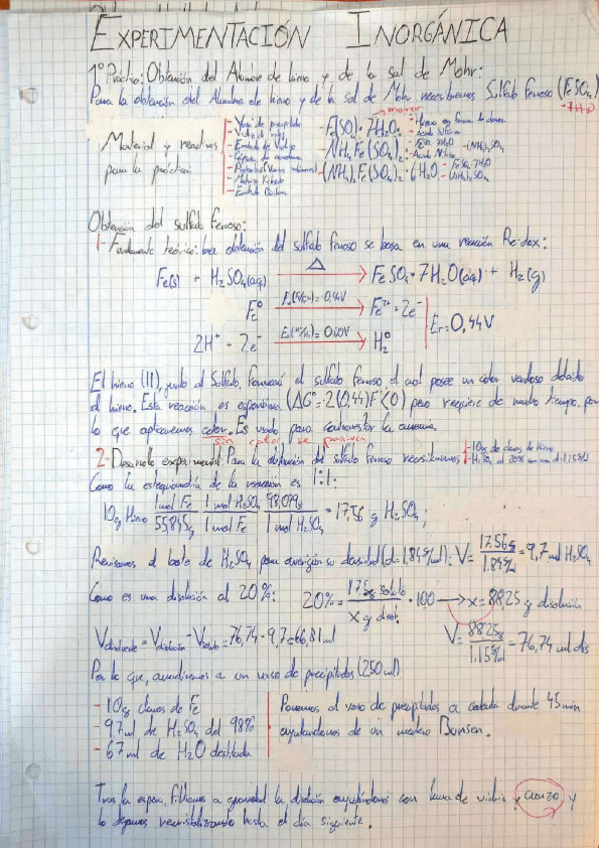 EXPERIMENTACIÓN INORGÁNICA
1º Práctica: Obtención del Alumbre de hierro y de la sal de Mohr:
Para la obtención del Alumbre de hierro y de la sal de Mohr necesitaremos Sulfato ferroso (FeSO₄)
·7H₂O
Material y reactivos
para la práctica
- Vaso de precipitado
- Vidrio de reloj
- Embudo de Vidrio
- Matraz Kitasato
- Embudo Büchner
- Fe(SO₄)·7H₂O
- NH₄Fe(SO₄)₂
- (NH₄)₂Fe(SO₄)₂·6H₂O
Obtención del sulfato ferroso:
1- Fundamento teórico: La obtención del sulfato ferroso se basa en una reacción Re-dox:
Fe(s) + H₂SO₄(aq) Δ → FeSO₄·7H₂O(aq) + H₂(g)
Fe⁰ → Fe²⁺ + 2e⁻
2H⁺ - 2e⁻ → H₂⁰
Er=0,44V
El hierro (II), junto al Sulfato, formará el sulfato ferroso, el cual posee un color verdoso debido
al hierro. Esta reacción es espontánea (ΔG°=-2(0,44)F<0) pero requiere de mucho tiempo, por
lo que aplicaremos calor. Es usado para contrarrestar la anemia.
sin calor se pasiva
2- Desarrollo experimental: Para la obtención del sulfato ferroso necesitaremos
- 10g de clavos de hierro
- H₂SO₄ al 20% en masa d=1,15g/ml
Como la estequiometría de la reacción es 1:1.
10g Hierro 1mol Fe / 55,845g 1 mol H₂SO₄ / 1 mol Fe 98,079g / 1 mol H₂SO₄ = 17,56 g H₂SO₄;
Revisamos el bote de H₂SO₄ para averiguar su densidad (d=1,84g/ml): V= 17,56g / 1,84g/ml = 9,7 ml H₂SO₄
Como es una disolución al 20%: 20%= 17,5g soluto / x g disol. ·100 → x=88,25 g disolución
Vdisolvente = Vdisolución - Vsoluto = 76,74 - 9,7 = 66,81 ml
V= 88,25g / 1,15g/ml = 76,74 ml dis
Por lo que, añadiremos a un vaso de precipitados (250 ml)
- 10g clavos de Fe
- 9,7 ml de H₂SO₄ del 98%
- 67 ml de H₂O destilada
Ponemos el vaso de precipitados a calentar durante 45 min
ayudándonos de un mechero Bunsen.
Tras la espera, filtramos a gravedad la disolución ayudándonos con lana de vidrio y cuarzo y
lo dejamos recristalizando hasta el día siguiente.